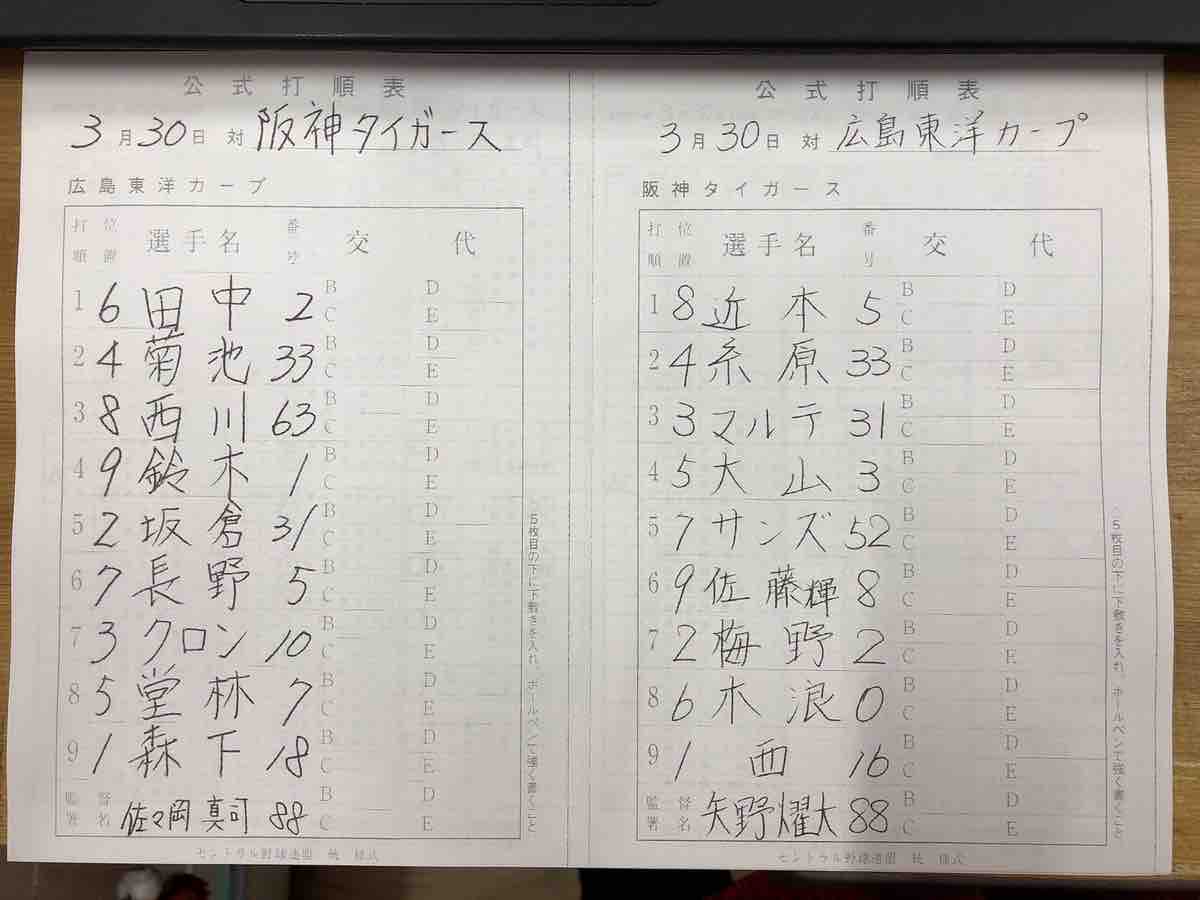 公式打順表
3月30日 対 阪神タイガース
広島東洋カープ
打順 位置 選手名 番号 交 代
1 6 田中 2 B C D E
2 4 菊池 33 B C D E
3 8 西川 63 B C D E
4 9 鈴木 1 B C D E
5 2 坂倉 31 B C D E
6 7 長野 5 B C D E
7 3 クロン 10 B C D E
8 5 堂林 7 B C D E
9 1 森下 18 B C D E
監督署名 佐々岡真司 88 B C D E
セントラル野球連盟 統一様式
5枚目の下に下敷きを入れ、ボールペンで強く書くこと
公式打順表
3月30日 対 広島東洋カープ
阪神タイガース
打順 位置 選手名 番号 交 代
1 8 近本 5 B C D E
2 4 糸原 33 B C D E
3 3 マルテ 31 B C D E
4 5 大山 3 B C D E
5 7 サンズ 52 B C D E
6 9 佐藤輝 8 B C D E
7 2 梅野 2 B C D E
8 6 木浪 0 B C D E
9 1 西 16 B C D E
監督署名 矢野燿大 88 B C D E
セントラル野球連盟 統一様式
5枚目の下に下敷きを入れ、ボールペンで強く書くこと